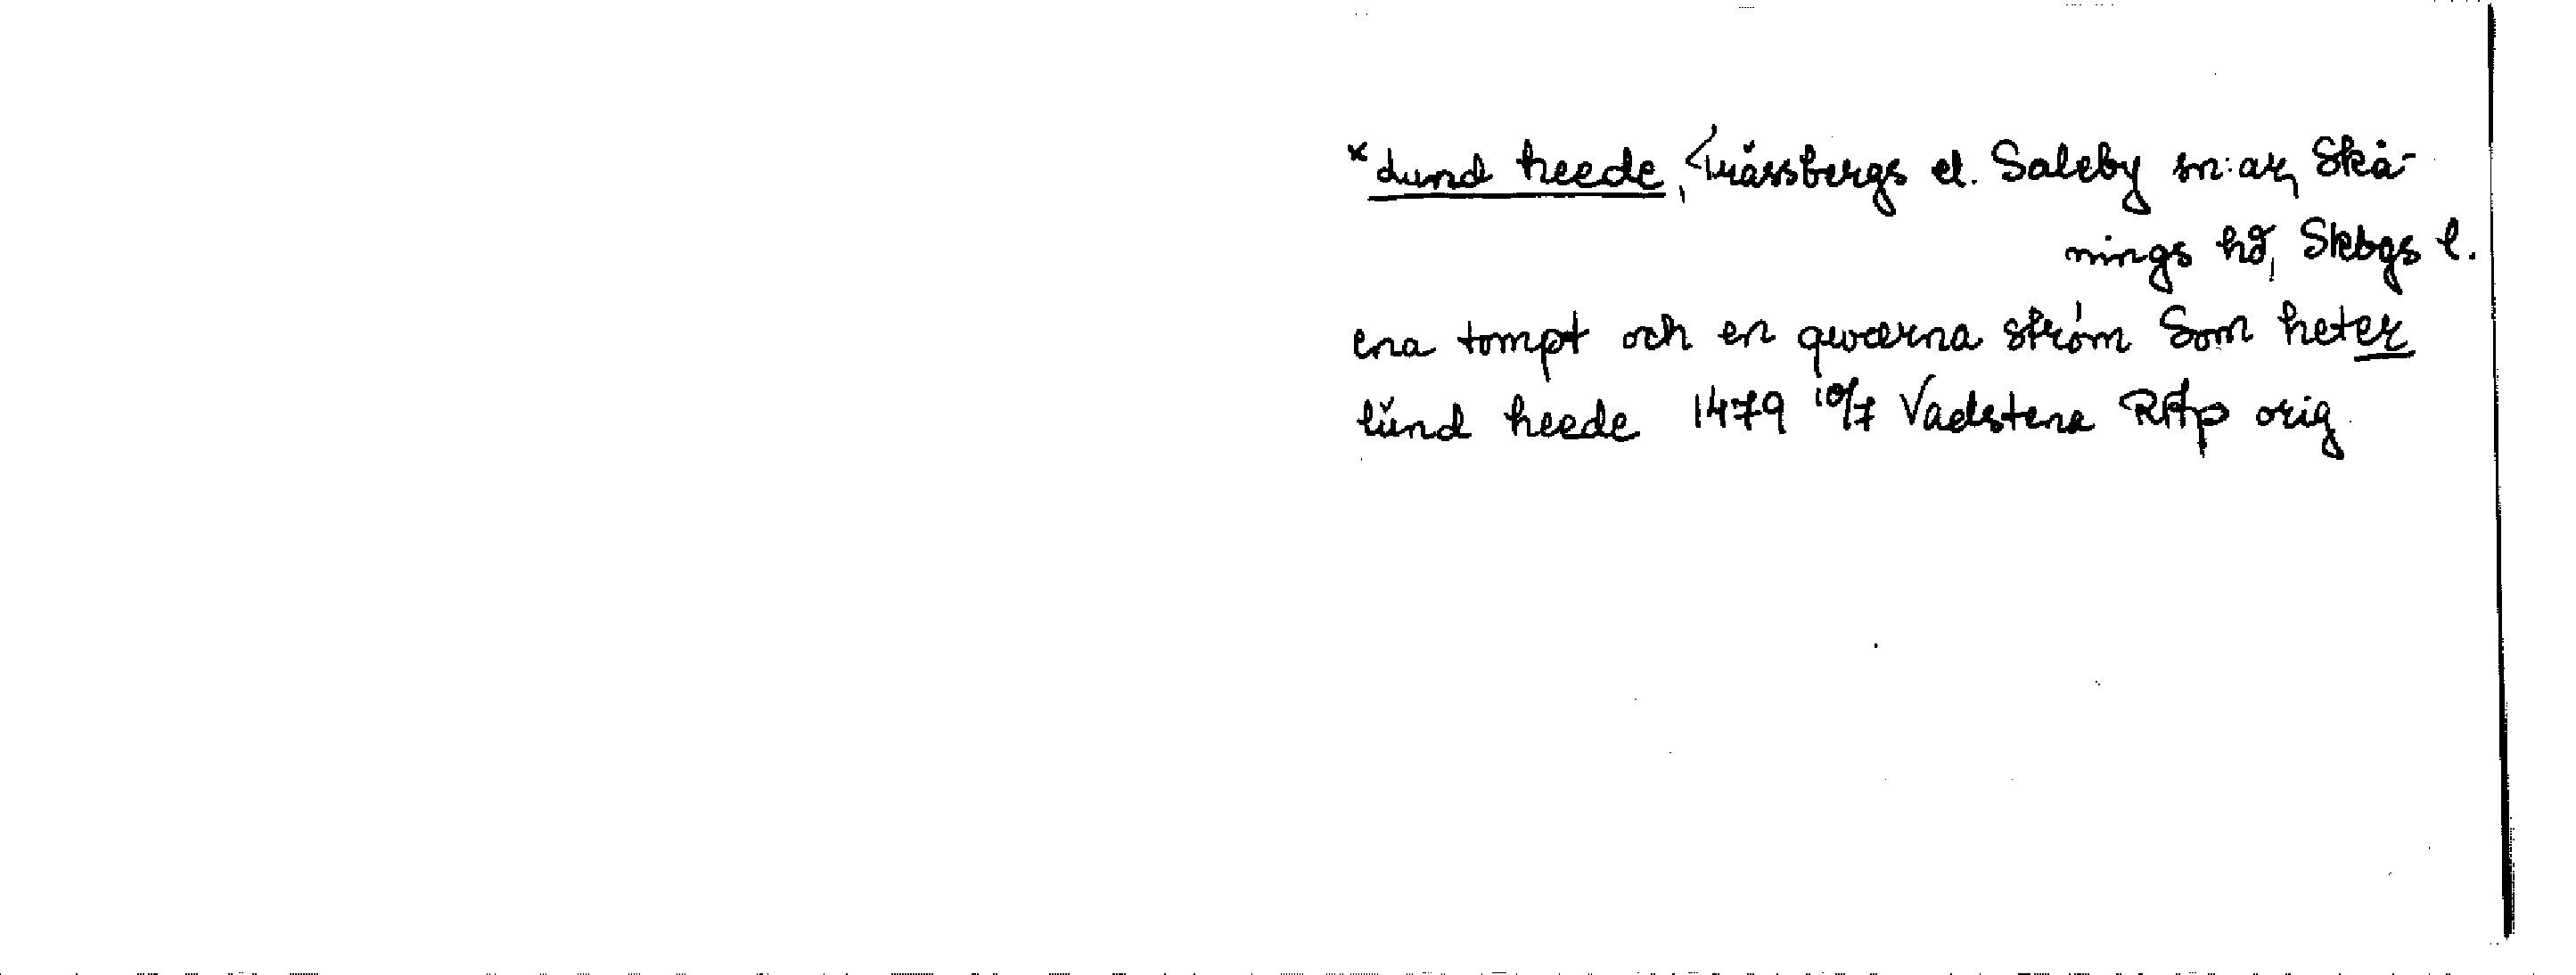 *Lund heede, Trässbergs el. Saleby sn:ar, Skå-
nings hd, Skbgs l.
ena tompt och en qwærna ström Som heter
lund heede 1479 10/7 Vadstena RAp orig